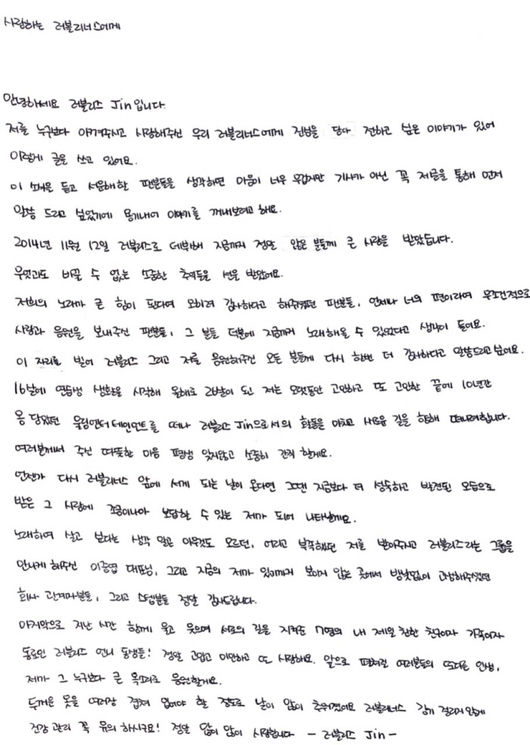 사랑하는 러블리너스에게
안녕하세요 러블리즈 Jin 입니다.
저를 누구보다 아껴주시고 사랑해주신 우리 러블리너스에게 진심을 담아 전하고 싶은 이야기가 있어
이렇게 글을 쓰고 있어요.
이 소식을 듣고 서운해할 팬분들을 생각하면 마음이 너무 무겁지만 기사가 아닌 꼭 저를 통해 먼저
말씀 드리고 싶었기에 용기내어 이야기를 꺼내보려고 해요.
2014년 11월 12일 러블리즈로 데뷔해 지금까지 정말 많은 분들께 큰 사랑을 받았습니다.
무엇과도 바꿀 수 없는 소중한 추억들을 선물 받았어요.
저희의 노래가 큰 힘이 된다며 오히려 감사하다고 해주셨던 팬분들, 언제나 너의 편이라며 무조건적으로
사랑과 응원을 보내주신 팬분들, 그 분들 덕분에 지금까지 노래해올 수 있었다고 생각이 들어요.
이 자리를 빌어 러블리즈 그리고 저를 응원해주신 모든 분들께 다시 한번 더 감사하다고 말씀드리고 싶어요.
16살에 연습생 생활을 시작해 올해로 26살이 되고 저는 오랫동안 고민하고 또 고민한 끝에 10년간
몸 담았던 울림엔터테인먼트를 떠나 러블리즈 Jin으로서의 활동을 마치고 새로운 길을 향해 떠나려합니다.
여러분께서 주신 따뜻한 마음 평생 잊지않고 소중히 간직 할게요.
언젠가 다시 러블리너스 앞에 서게 되는 날이 온다면 그땐 지금보다 더 성숙하고 발전된 모습으로
받은 그 사랑에 조금이나마 보답할 수 있는 제가 되어 나타날게요.
노래하며 살고 싶다는 생각 말곤 아무것도 모르던, 어리고 부족했던 저를 받아주시고 러블리즈라는 그룹을
만나게 해주신 이중엽 대표님, 그리고 지금의 제가 있기까지 보이지 않는 곳에서 밤낮없이 고생해주셨던
회사 관계자분들, 그리고 스텝분들 정말 감사드립니다.
마지막으로 지난 시간 함께 울고 웃으며 서로의 길을 지켜준 7명의 내 제일 친한 친구이자 가족이자
동료인 러블리즈 언니 동생들! 정말 고맙고 미안하고 또 사랑해요. 앞으로 펼쳐질 여러분들의 또다른 인생,
제가 그 누구보다 큰 목소리로 응원할게요.
두꺼운 옷을 여러장 겹쳐 입어야 할 정도로 날이 많이 추워졌어요 러블리너스 감기 걸리지않게
건강 관리 꼭 유의 하시구요! 정말 많이 많이 사랑합니다 - 러블리즈 Jin -